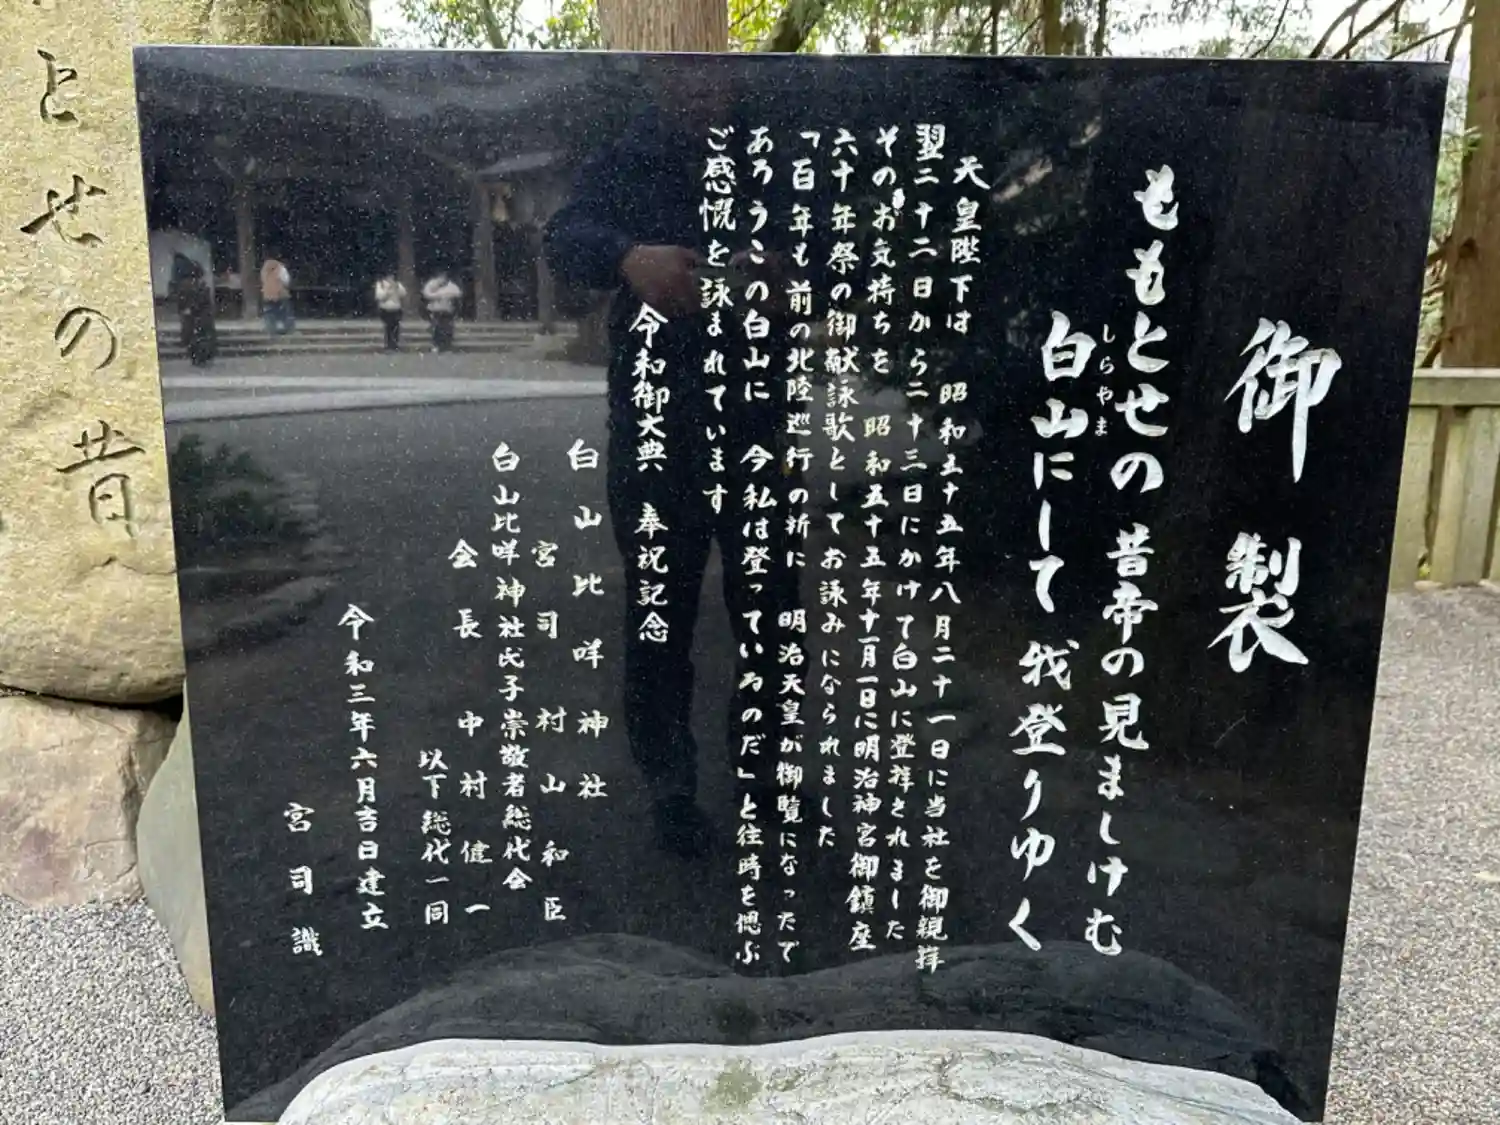 御製
ももとせの 昔帝の見ましけむ
白山にして 我登りゆく
しらやま
天皇陛下は 昭和五十五年八月二十一日に当社を御親拝
翌二十二日から二十三日にかけて白山に登拝されました
そのお気持ちを 昭和五十五年十一月一日に明治神宮御鎮座
六十年祭の御献詠歌としてお詠みになられました
「百年も前の北陸巡行の折に 明治天皇が御覧になったで
あろうこの白山に 今私は登っているのだ」と往時を偲ぶ
ご感慨を詠まれています
令和御大典 奉祝記念
白山比咩神社
宮司 村山和臣
白山比咩神社氏子崇敬者総代会
会長 中村健一
以下総代一同
令和三年六月吉日建立
宮司識
とせの昔